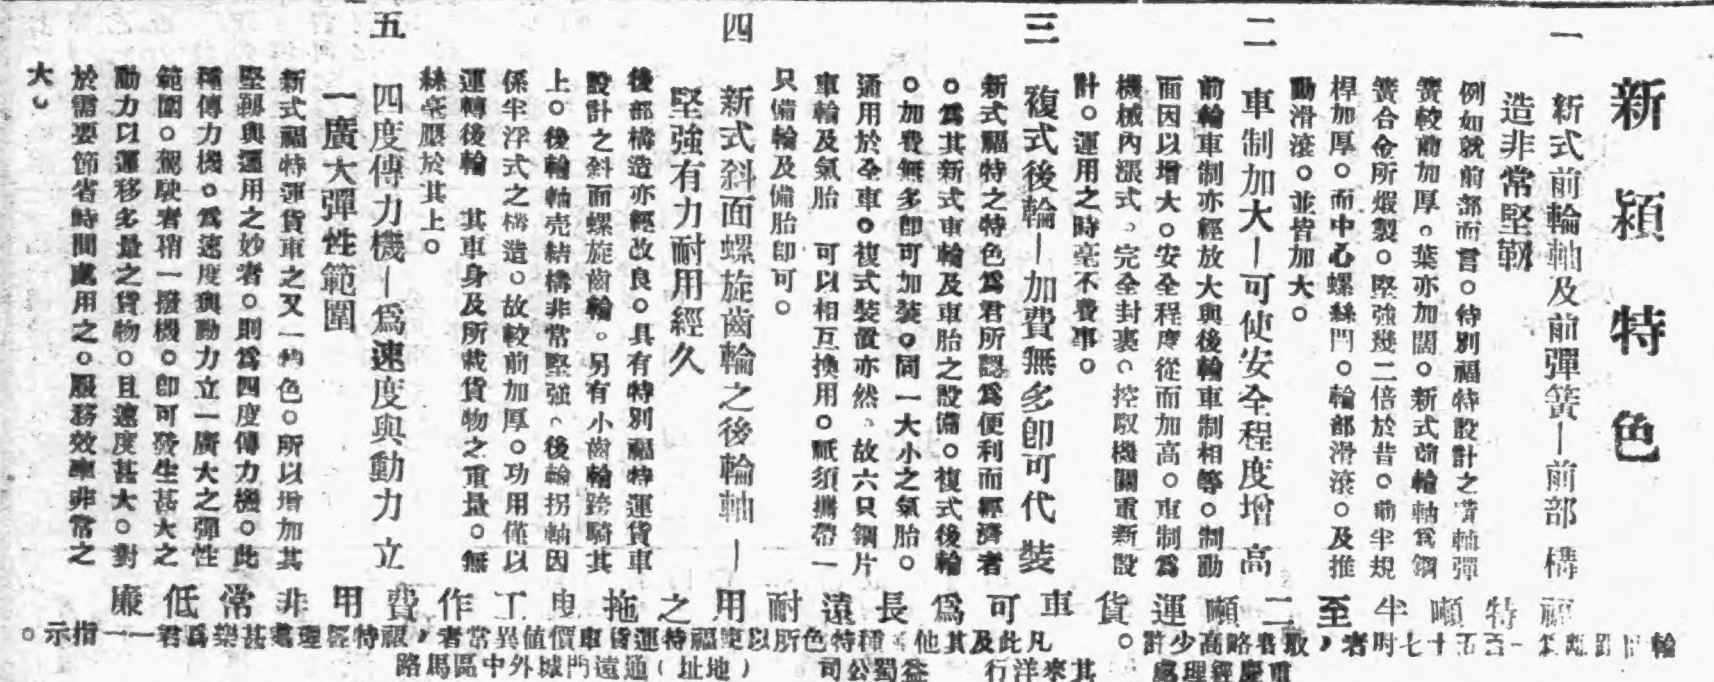 新穎特色
一 新式前輪軸及前彈簧—前部構
造非常堅韌
例如就前部而言。特別福特設計之前軸彈
簧較前加厚。葉亦加闊。新式前輪軸爲鋼
簧合金所煅製。堅強幾二倍於昔。前半規
桿加厚。而中心螺絲門。輪部滑滾。及推
動滑滾。並皆加大。
二 車制加大—可使安全程度增高
前輪車制亦經放大與後輪車制相等。制動
面因以增大。安全程度從而加高。車制爲
機械內漲式。完全封裹。控馭機關重新設
計。運用之時毫不費事。
三 複式後輪—加費無多卽可代裝
新式福特之特色爲君所認爲便利而經濟者
。爲其新式車輪及車胎之設備。複式後輪
。加費無多卽可加裝。同一大小之氣胎。
通用於全車。複式裝置亦然。故六只鋼片
車輪及氣胎 可以相互換用。祇須攜帶一
只備輪及備胎卽可。
四 新式斜面螺旋齒輪之後輪軸—
堅強有力耐用經久
後部構造亦經改良。具有特別福特運貨車
設計之斜面螺旋齒輪。另有小齒輪跨騎其
上。後輪軸壳結構非常堅強。後輪拐軸因
係半浮式之構造。故較前加厚。功用僅以
運轉後輪 其車身及所載貨物之重量。無
絲毫壓於其上。
五 四度傳力機—爲速度與動力立
一廣大彈性範圍
新式福特運貨車之又一特色。所以增加其
堅韌與運用之妙者。則爲四度傳力機。此
種傳力機。爲速度與動力立一廣大之彈性
範圍。駕駛者稍一撥機。卽可發生甚大之
動力以運移多量之貨物。且速度甚大。對
於需要節省時間處用之。服務效率非常之
大。
福特噸半至二噸運貨車可爲長遠耐用之拖曳工作費用非常低廉
五十七吋者，取費略高少許。凡此及其他種特色所以使福特運貨車價值異常者，福特經理處甚樂爲君一一指示。
重慶經理處 其來洋行 益蜀公司 （地址）通遠門城外中區馬路